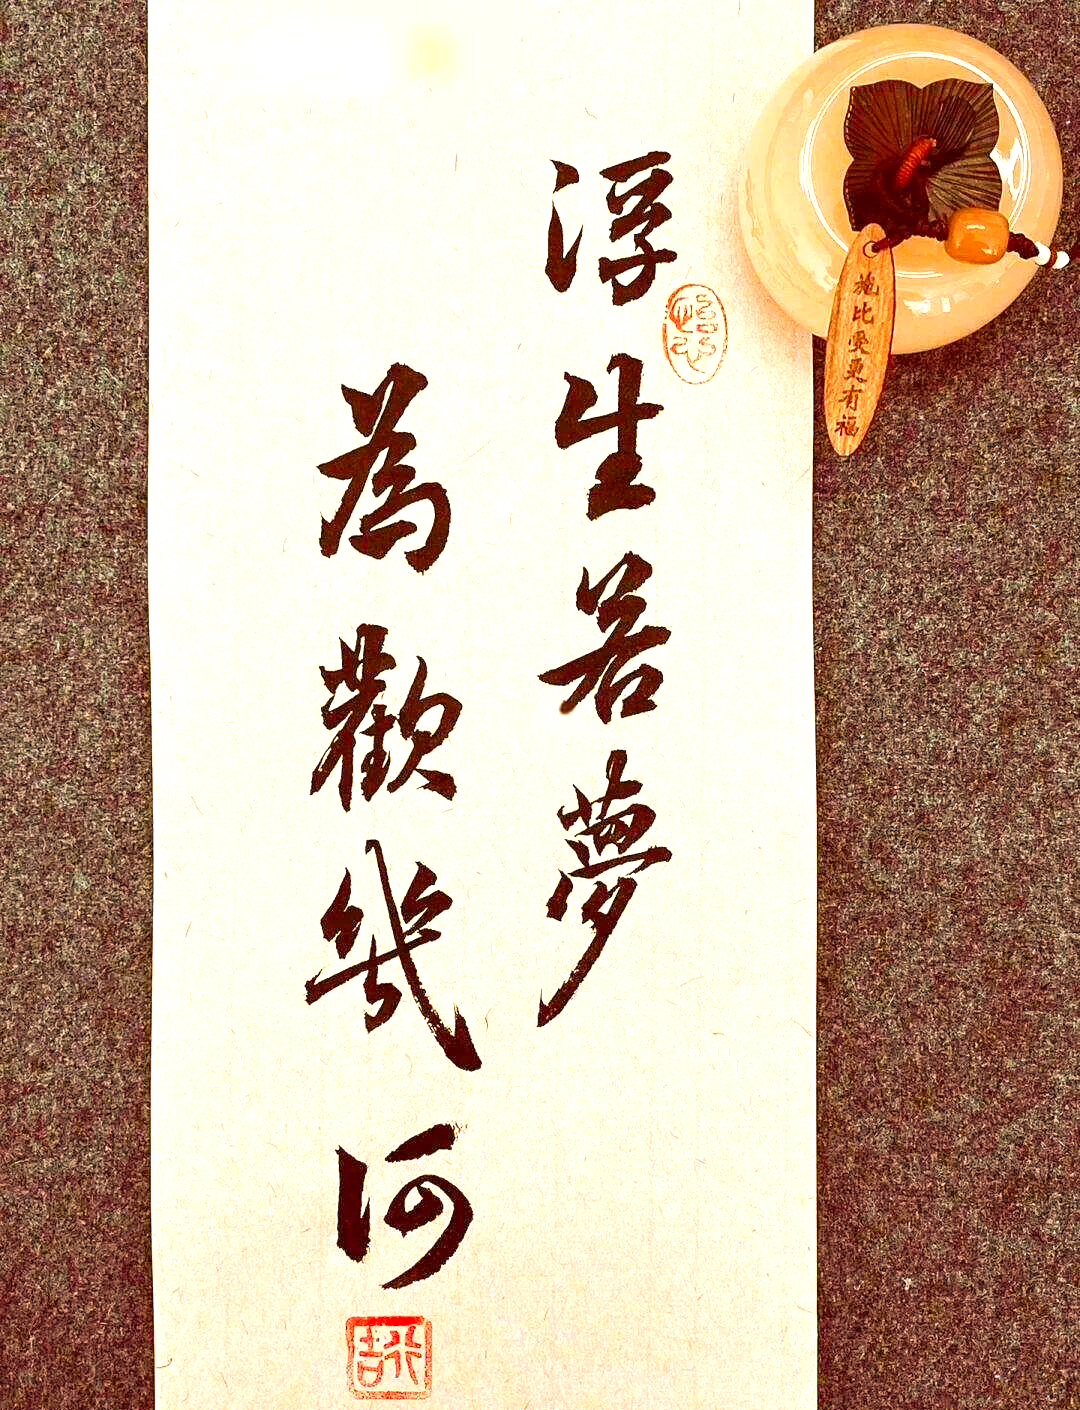 浮生若夢
為歡幾何
施比受更有福